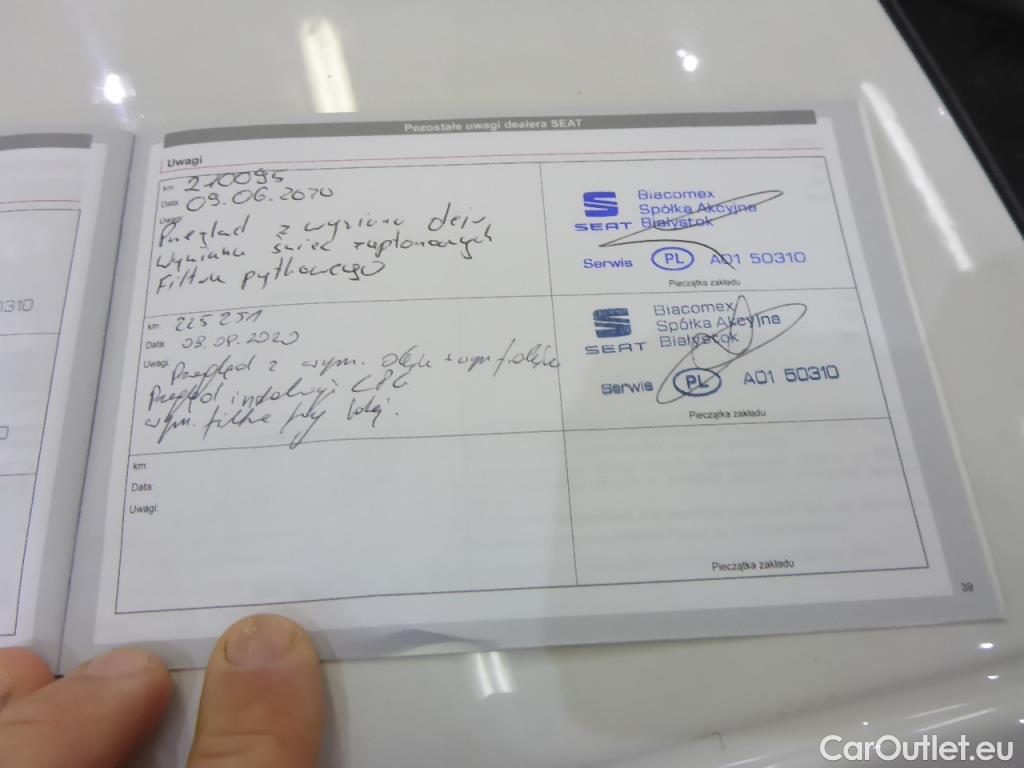 Pozostałe uwagi dealera SEAT
Uwagi
km: 210095
Data: 09.06.2020
Uwagi: Przegląd z wymianą oleju
Wymiana świec zapłonowych
Filtra pyłkowego
SEAT
Biacomex
Spółka Akcyjna
Białystok
Serwis PL A01 50310
Pieczątka zakładu
km: 225251
Data: 03.09.2020
Uwagi: Przegląd z wym. oleju + wym f. oleju
Przegląd instalacji LPG
wym. filtra
SEAT
Biacomex
Spółka Akcyjna
Białystok
Serwis PL A01 50310
Pieczątka zakładu
km:
Data:
Uwagi:
Pieczątka zakładu
39
0310
CarOutlet.eu